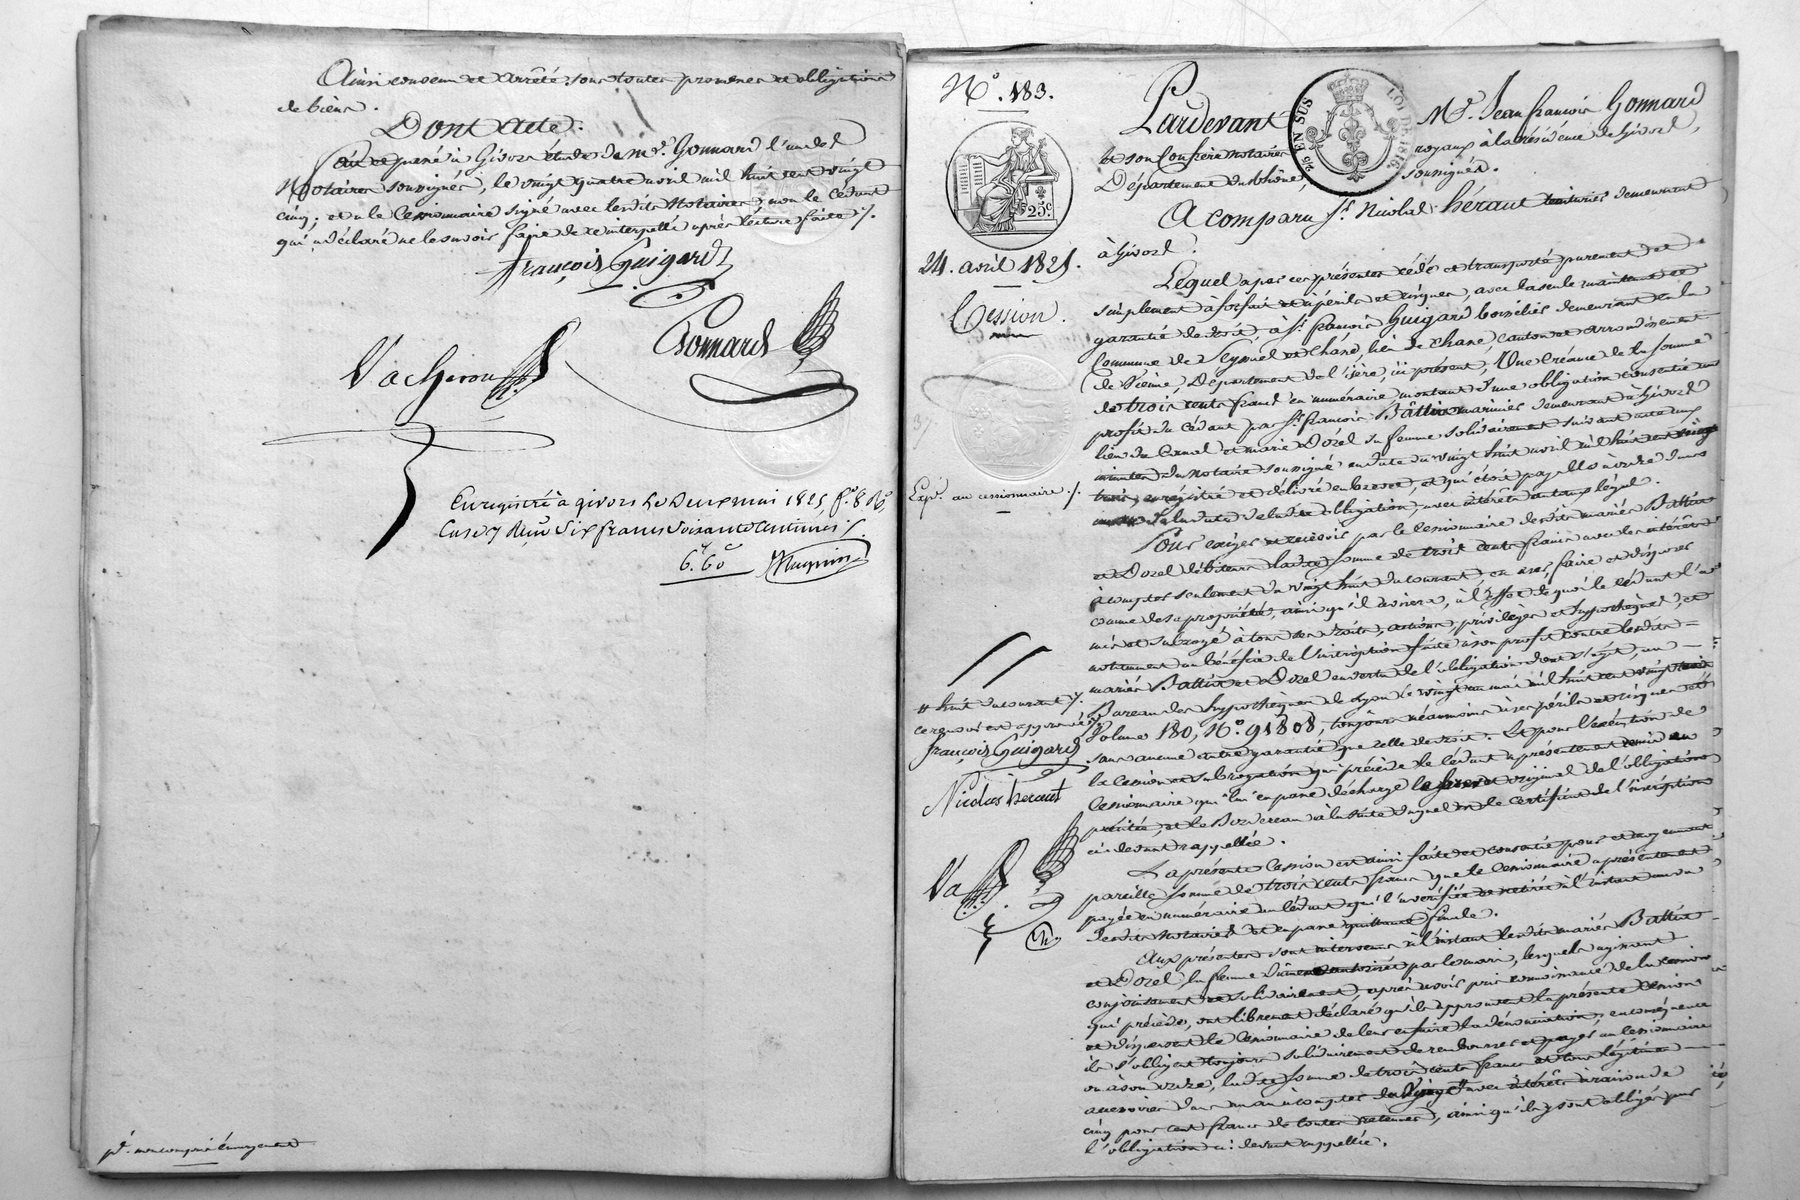 Ainsi convenu et arrêté sous toutes promesses et obligations
de biens.
Dont acte.
fait et passé à Givors étude de Me. Gonnard l'un des
Notaires soussignés, le vingt quatre avril mil huit cent vingt
cinq; et a le Cessionnaire signé avec lesdits Notaires, non le Cédant
qui a déclaré ne le savoir faire de ce interpellé après lecture faite ./.
François Guigard
Gonnard
Vacheron
Enregistré à givors le Deux mai 1825, fo. 8 Ro,
Case 7 Reçu Six francs Soixante Centimes ./.
6f. 60c
No. 183.
Pardevant Me. Jean françois Gonnard
et son Confrère notaires royaux à la résidence de Givors,
Département du Rhône, soussignés.
25 EN SUS
LOI DE 1816
25c
24. avril 1825.
Cession.
Expn. au cessionnaire ./.
A comparu Sr. Nicolas héraut teinturier demeurant
à Givors.
Lequel a par ces présentes cédé et transporté purement et
simplement à forfait et à périls et risques, avec la seule maintenue et
garantie de droit, à Sr. françois Guigard demeurant en la
Commune de Seyssuel et Chane, lieu de Chane canton et arrondissement
de Vienne, Département de l'isère, ici présent, Une Créance de la somme
de trois cents francs en numéraire montant d'une obligation consentie au
profit du cédant par Sr. françois Battin marinier demeurant à Givors
lieu du Canal et marie Dozel sa femme solidairement suivant acte reçu
minute du Notaire soussigné en date du vingt huit avril mil huit cent vingt
trois, enregistré et délivré en brevet, et qui étoit payable à
de la date de ladite obligation, avec intérêts au taux légal.
Pour exiger et recevoir par le Cessionnaire desdits mariés Battin
et Dozel débiteurs ladite somme de trois cents francs avec les intérêts
à compter seulement du vingt huit du courant, en user, faire et disposer
comme de sa propriété, ainsi qu'il avisera, à l'effet de quoi le cédant l'a
mis et subrogé à tous ses droits, actions, privilèges et hypothèques, et
notamment au bénéfice de l'inscription faite à son profit contre lesdits
mariés Battin et Dozel en vertu de l'obligation dont s'agit, au
Bureau des hypothèques de Lyon le vingt un mai mil huit cent vingt trois
Volume 180, No. 91808, toujours néanmoins à ses périls et risques et
sans aucune autre garantie que celle de droit. Et pour l'exécution de
la Cession et subrogation qui précède le Cédant a présentement remis au
Cessionnaire qui lui en passe décharge le brevet original de l'obligation
précitée, et le Bordereau à la suite duquel est le certificat de l'inscription
ci-devant rappellée.
huit du courant ./.
ce renvoi est approuvé ./.
François Guigard
Nicolas heraut
La présente Cession est ainsi faite et consentie pour et moyennant
pareille somme de trois cents francs que le Cessionnaire a présentement
payée en numéraire au Cédant qui l'a vérifiée et retirée à l'instant au vu
desdits Notaires et en passe quittance finale.
Aux présentes sont intervenus à l'instant lesdits mariés Battin
et Dozel, la femme dûment autorisée par le mari, lesquels agissant
conjointement et solidairement, après avoir pris connoissance de la cession
qui précède, ont librement déclaré qu'ils approuvent la présente Cession
et dispensent le Cessionnaire de leur en faire la dénonciation, en conséquence
ils s'obligent toujours solidairement de rembourser et payer au Cessionnaire
ou à son ordre, ladite somme de trois cents francs et tous légitimes
accessoires dans un an à compter du Vingt avec intérêts à raison de
cinq pour cent francs de toutes retenues, ainsi qu'ils y sont obligés par
l'obligation ci-devant rappellée.